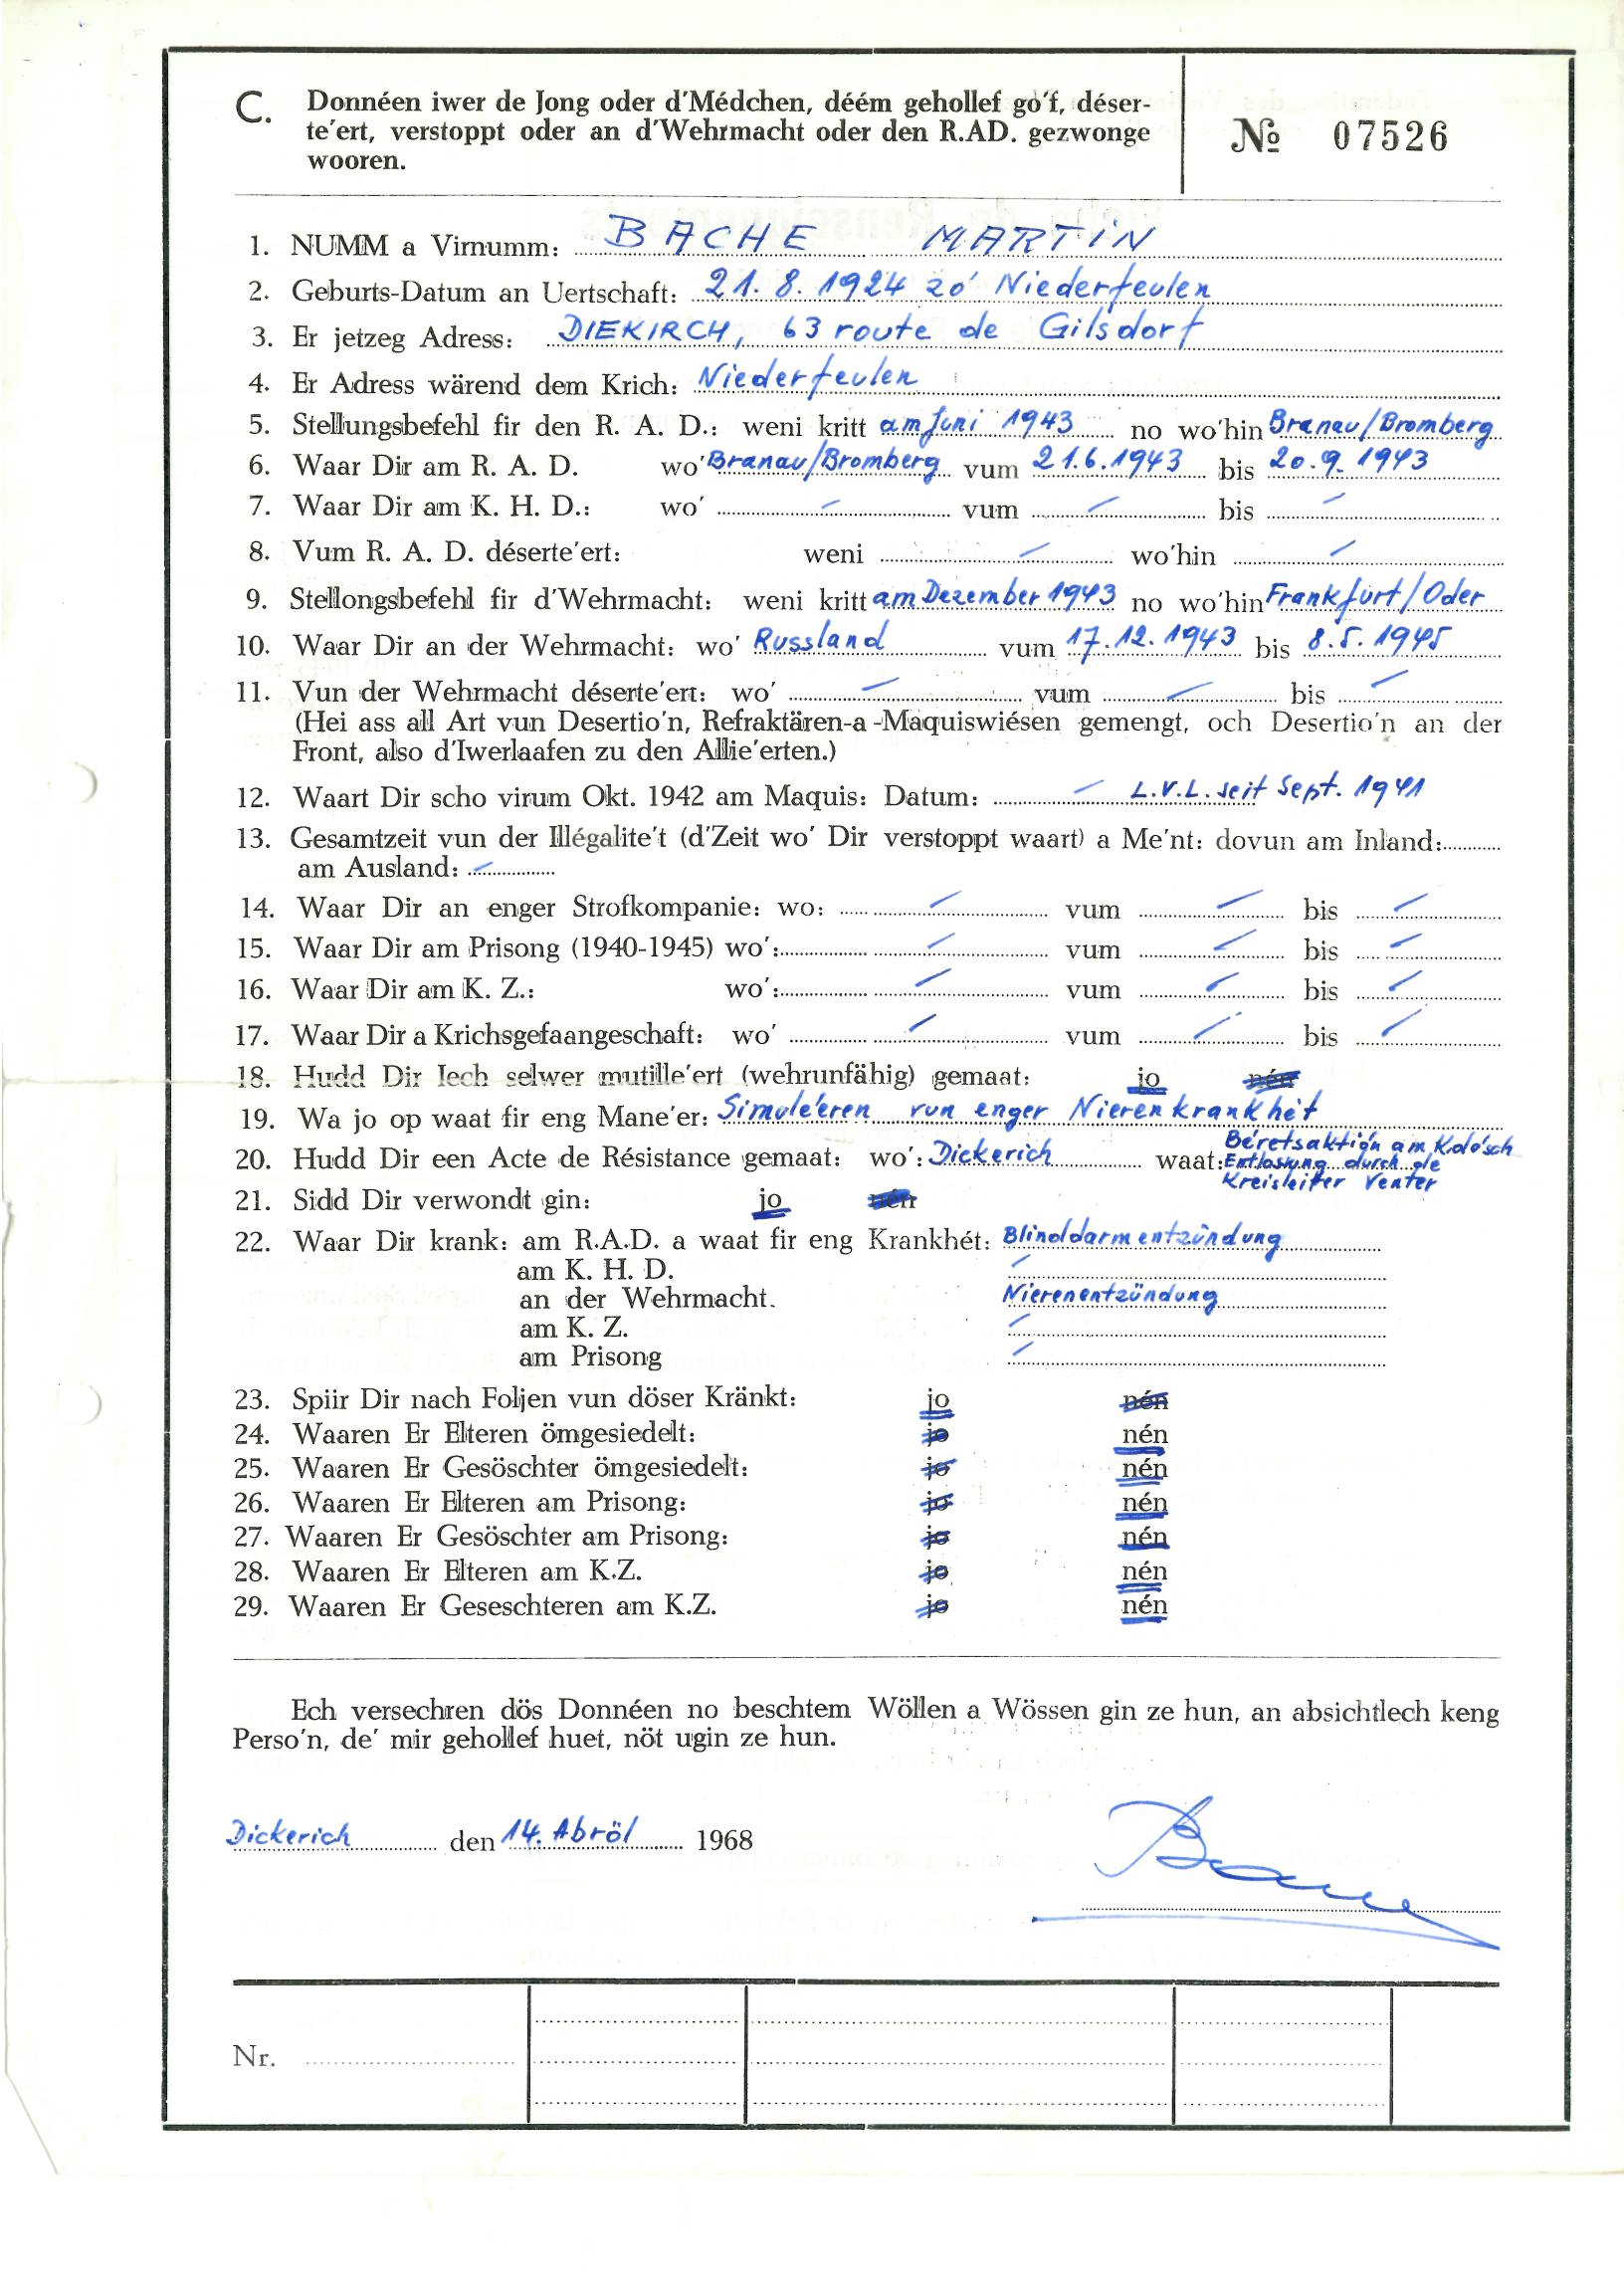 C. Donnéen iwer de Jong oder d'Médchen, déém gehollef go'f, déser-
te'ert, verstoppt oder an d'Wehrmacht oder den R.AD. gezwonge
wooren.
№ 07526
1. NUMM a Virnumm: BACHE MARTIN
2. Geburts-Datum an Uertschaft: 21. 8. 1924 zo' Niederfeulen
3. Er jetzeg Adress: DIEKIRCH, 63 route de Gilsdorf
4. Er Adress wärend dem Krich: Niederfeulen
5. Stellungsbefehl fir den R. A. D.: weni kritt am Juni 1943 no wo'hin Branau/Bromberg
6. Waar Dir am R. A. D. wo' Branau/Bromberg vum 21.6.1943 bis 20.9.1943
7. Waar Dir am K. H. D.: wo' – vum – bis –
8. Vum R. A. D. déserte'ert: weni – wo'hin –
9. Stellongsbefehl fir d'Wehrmacht: weni kritt am Dezember 1943 no wo'hin Frankfurt/Oder
10. Waar Dir an der Wehrmacht: wo' Russland vum 17.12.1943 bis 8.5.1945
11. Vun der Wehrmacht déserte'ert: wo' – vum – bis –
(Hei ass all Art vun Desertio'n, Refraktären-a-Maquiswiésen gemengt, och Desertio'n an der
Front, also d'Iwerlaafen zu den Allie'erten.)
12. Waart Dir scho virum Okt. 1942 am Maquis: Datum: – L.V.L. seit Sept. 1941
13. Gesamtzeit vun der Illégalite't (d'Zeit wo' Dir verstoppt waart) a Me'nt: dovun am Inland:
am Ausland: –
14. Waar Dir an enger Strofkompanie: wo: – vum – bis –
15. Waar Dir am Prisong (1940-1945) wo': – vum – bis –
16. Waar Dir am K. Z.: wo': – vum – bis –
17. Waar Dir a Krichsgefaangeschaft: wo' – vum – bis –
18. Hudd Dir Iech selwer mutille'ert (wehrunfähig) gemaat: jo nén
19. Wa jo op waat fir eng Mane'er: Simule'eren vun enger Nierenkrankhét
20. Hudd Dir een Acte de Résistance gemaat: wo': Dickerich waat: Béretsaktio'n am Kolo'sch
Entlossung durch de
Kreisleiter Venter
21. Sidd Dir verwondt gin: jo nén
22. Waar Dir krank: am R.A.D. a waat fir eng Krankhét: Blinddarmentzündung
am K. H. D. –
an der Wehrmacht. Nierenentzündung
am K. Z. –
am Prisong –
23. Spiir Dir nach Foljen vun döser Kränkt: jo nén
24. Waaren Er Elteren ömgesiedelt: jo nén
25. Waaren Er Gesöschter ömgesiedelt: jo nén
26. Waaren Er Elteren am Prisong: jo nén
27. Waaren Er Gesöschter am Prisong: jo nén
28. Waaren Er Elteren am K.Z. jo nén
29. Waaren Er Geseschteren am K.Z. jo nén
Ech versechren dös Donnéen no beschtem Wöllen a Wössen gin ze hun, an absichtlech keng
Perso'n, de' mir gehollef huet, nöt ugin ze hun.
Dickerich den 14. Abröl 1968
Nr.